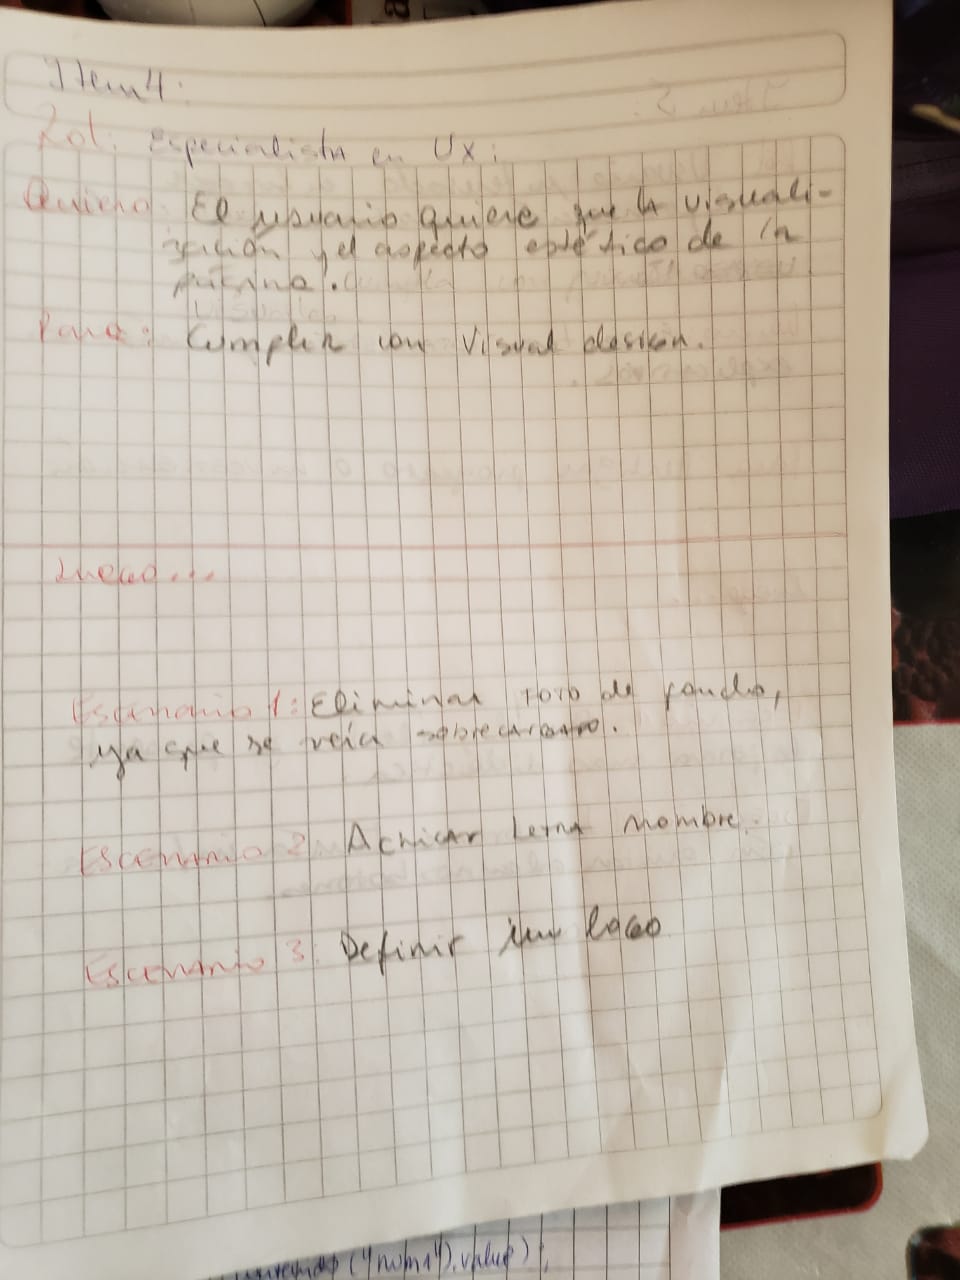 Item 4:
Rol: Especialista en Ux:
Quiero: El usuario quiere que la visuali-
zación y el aspecto estético de la
página.
Para: Cumplir con Visual design.
Luego...
Escenario 1: Eliminar foto de fondo,
ya que se veía sobrecargado.
Escenario 2: Achicar Letra nombre.
Escenario 3: Definir un logo